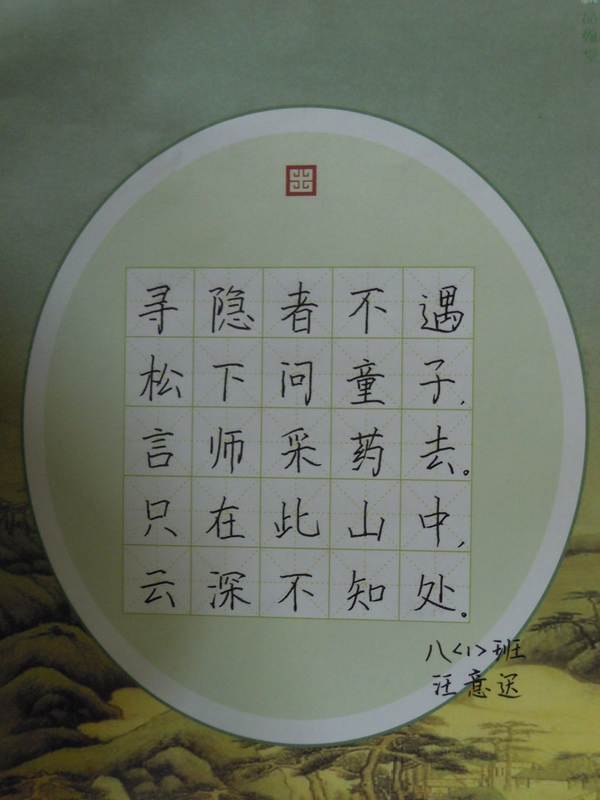 寻隐者不遇
松下问童子,
言师采药去。
只在此山中,
云深不知处。
八<1>班
汪意送